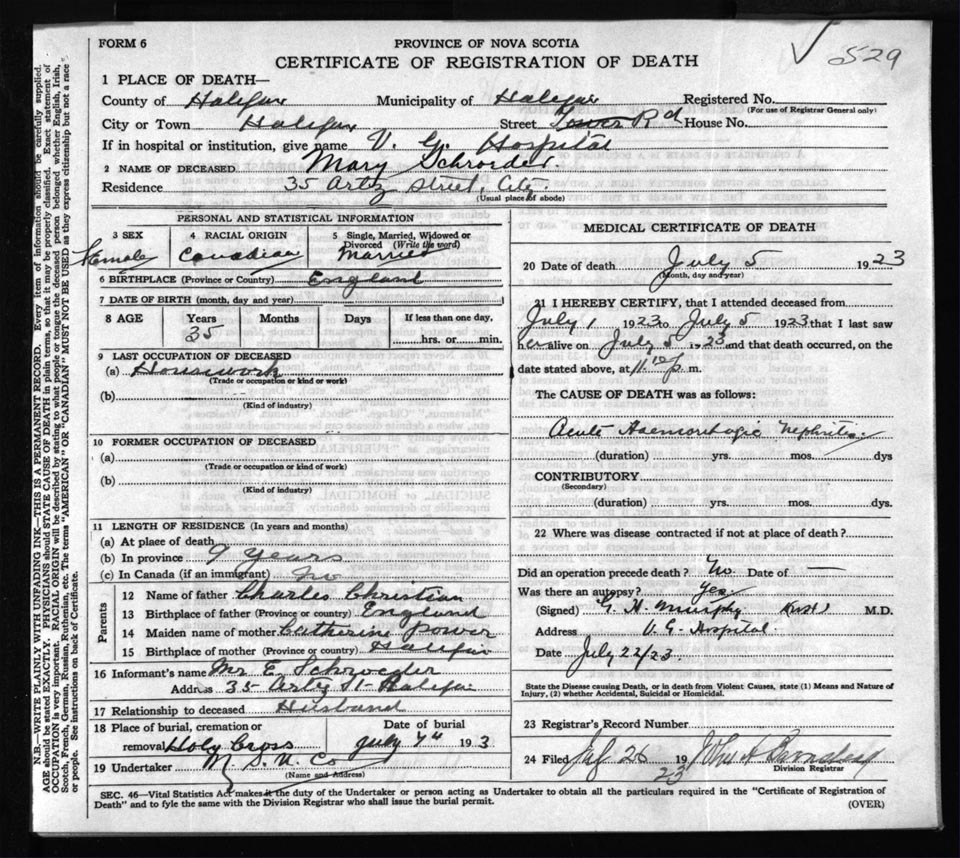 529
FORM 6
PROVINCE OF NOVA SCOTIA
CERTIFICATE OF REGISTRATION OF DEATH
1 PLACE OF DEATH—
County of Halifax Municipality of Halifax Registered No.
(For use of Registrar General only)
City or Town Halifax Street Tower Rd House No.
If in hospital or institution, give name V. G. Hospital
2 NAME OF DECEASED Mary Schroeder.
Residence 35 Artz Street, City.
(Usual place of abode)
PERSONAL AND STATISTICAL INFORMATION
3 SEX 4 RACIAL ORIGIN 5 Single, Married, Widowed or Divorced (Write the word)
Female Canadian Married
6 BIRTHPLACE (Province or Country) England
7 DATE OF BIRTH (month, day and year)
8 AGE Years Months Days If less than one day,
35 hrs. or min.
9 LAST OCCUPATION OF DECEASED
(a) Housework
(Trade or occupation or kind or work)
(b)
(Kind of industry)
10 FORMER OCCUPATION OF DECEASED
(a)
(Trade or occupation or kind or work)
(b)
(Kind of industry)
11 LENGTH OF RESIDENCE (In years and months)
(a) At place of death
(b) In province 9 years
(c) In Canada (if an immigrant) no
Parents
12 Name of father Charles Christian
13 Birthplace of father (Province or country) England
14 Maiden name of mother Catherine Power
15 Birthplace of mother (Province or country) Halifax
16 Informant's name Mr E. Schroeder
Address 35 Artz St- Halifax
17 Relationship to deceased Husband
18 Place of burial, cremation or Date of burial
removal Holy Cross July 7th 1923
19 Undertaker M S. U. Co
(Name and Address)
MEDICAL CERTIFICATE OF DEATH
20 Date of death July 5 1923
(Month, day and year)
21 I HEREBY CERTIFY, that I attended deceased from
July 1 1923 to July 5 1923 that I last saw
her alive on July 5 1923 and that death occurred, on the
date stated above, at 11 p m.
The CAUSE OF DEATH was as follows:
Acute Haemorrhagic Nephritis
(duration) yrs. mos. dys
CONTRIBUTORY
(Secondary)
(duration) yrs. mos. dys.
22 Where was disease contracted if not at place of death?
Did an operation precede death? No Date of —
Was there an autopsy? Yes
(Signed) G. H. Murphy M.D.
Address V. G. Hospital.
Date July 22/23.
State the Disease causing Death, or in death from Violent Causes, state (1) Means and Nature of
Injury, (2) whether Accidental, Suicidal or Homicidal.
23 Registrar's Record Number
24 Filed July 26 1923
Division Registrar
SEC. 46—Vital Statistics Act makes it the duty of the Undertaker or person acting as Undertaker to obtain all the particulars required in the "Certificate of Registration of
Death" and to fyle the same with the Division Registrar who shall issue the burial permit.
(OVER)
N.B.—WRITE PLAINLY WITH UNFADING INK—THIS IS A PERMANENT RECORD. Every item of information should be carefully supplied.
AGE should be stated EXACTLY. PHYSICIANS should STATE CAUSE OF DEATH in plain terms, so that it may be properly classified. Exact statement of
OCCUPATION is very important. RACIAL ORIGIN will be described by stating to what people or tongue the deceased person belonged whether English, Irish,
Scotch, French, German, Russian, Ruthenian, etc. The terms "AMERICAN" OR "CANADIAN" MUST NOT BE USED as they express citizenship but not a race
or people. See instructions on back of Certificate.